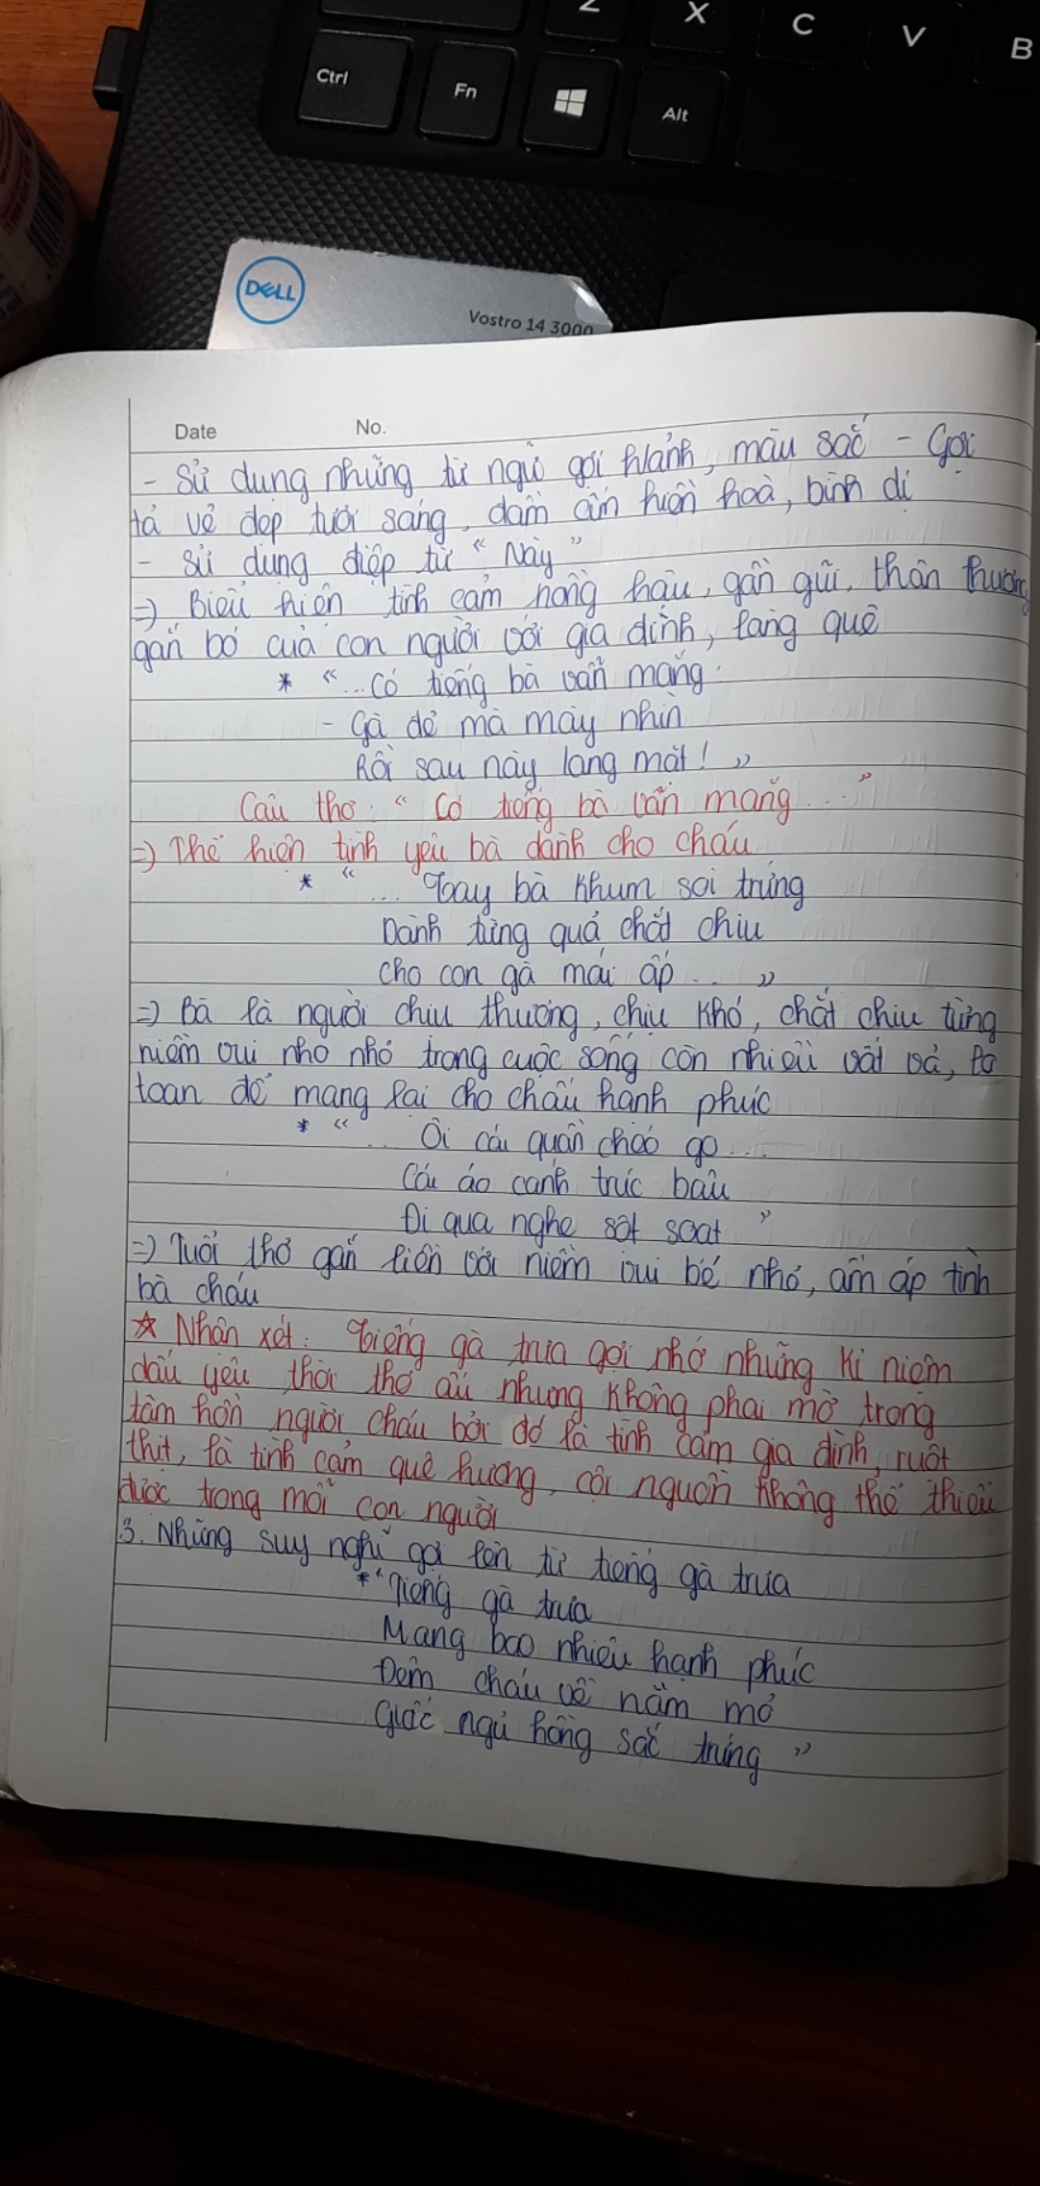 Z X C V B
Ctrl Fn Alt
DELL
Vostro 14 3000
Date No.
- Sử dụng những từ ngữ gợi h/ảnh, màu sắc - Gợi
tả vẻ đẹp tươi sáng, đầm ấm hiền hoà, bình dị
- Sử dụng điệp từ "Này"
=) Biểu hiện tình cảm nồng hậu, gần gũi, thân thương
gắn bó của con người với gia đình, làng quê
* "... Có tiếng bà vẫn mắng
- Gà đẻ mà mày nhìn
Rồi sau này lang mặt! "
Câu thơ: " Có tiếng bà vẫn mắng ... "
=) Thể hiện tình yêu bà dành cho cháu
* " ... Tay bà khum soi trứng
Dành từng quả chắt chiu
Cho con gà mái ấp ... "
=) Bà là người chịu thương, chịu khó, chắt chiu từng
niềm vui nho nhỏ trong cuộc sống còn nhiều vất vả, lo
toan để mang lại cho cháu hạnh phúc
* " ... Ôi cái quần chéo go ...
Cái áo cánh trúc bâu
Đi qua nghe sột soạt "
=) Tuổi thơ gắn liền với niềm vui bé nhỏ, ấm áp tình
bà cháu
☆ Nhận xét: Tiếng gà trưa gợi nhớ những kỉ niệm
dấu yêu thời thơ ấu nhưng không phai mờ trong
tâm hồn người cháu bởi đó là tình cảm gia đình, ruột
thịt, là tình cảm quê hương, cội nguồn không thể thiếu
được trong mỗi con người
3. Những suy nghĩ gợi lên từ tiếng gà trưa
* "Tiếng gà trưa
Mang bao nhiêu hạnh phúc
Đêm cháu về nằm mơ
Giấc ngủ hồng sắc trứng "